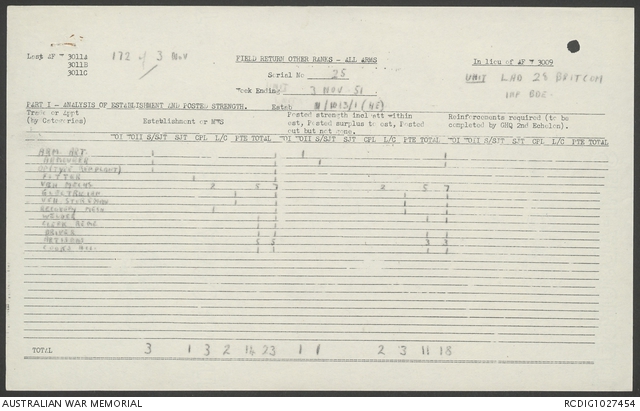 Less AF W 3011A
3011B
3011C
172 of 3 Nov
FIELD RETURN OTHER RANKS - ALL ARMS
In lieu of AF W 3009
Serial No 25
UNIT LAD 28 BRITCOM
INF BDE
Week Ending 3 NOV 51
PART I - ANALYSIS OF ESTABLISHMENT AND POSTED STRENGTH.
Estab
Trade or Appt
(by Categories)
Establishment or
Posted strength incl att within
est, Posted surplus to est, Posted
out but not gone.
Reinforcements required (to be
completed by GHQ 2nd Echelon).
WOI WOII S/SJT SJT CPL L/C PTE TOTAL WOI WOII S/SJT SJT CPL L/C PTE TOTAL WOI WOII S/SJT SJT CPL L/C PTE TOTAL
ARM ART 1 1
ARMOURER 1 1
1
FITTER 1 1
VEH MECHS 2 5 7 2 5 7
ELECTRICIAN 1 1 1 1
VEH STOREMAN 1 1 1 1
RECOVERY MECH 1 1 1
WELDER 1 1 1 1
CLERK 1 1 1 1
DRIVER 1 1 1 1
ARTISANS 5 5 3 3
1 1 1 1
TOTAL 3 1 3 2 14 23 1 1 2 3 11 18
AUSTRALIAN WAR MEMORIAL
RCDIG1027454